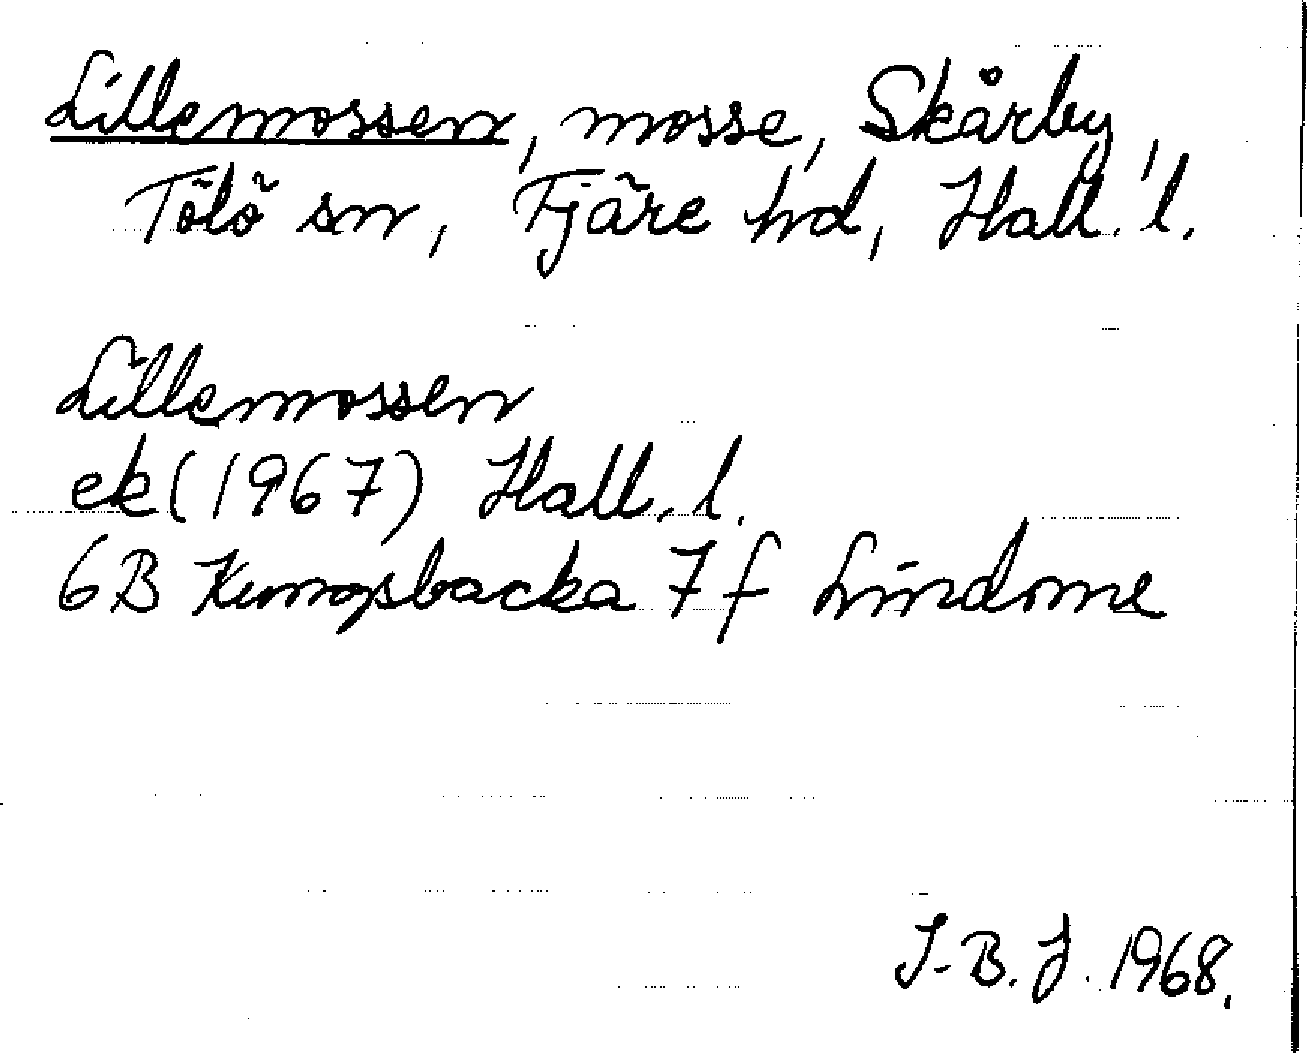 Lillemossen, mosse, Skårby,
Tölö sn, Fjäre hd, Hall. l.
Lillemossen
ek (1967) Hall. l.
6B Kungsbacka 7f Lindome
I-B. J. 1968.